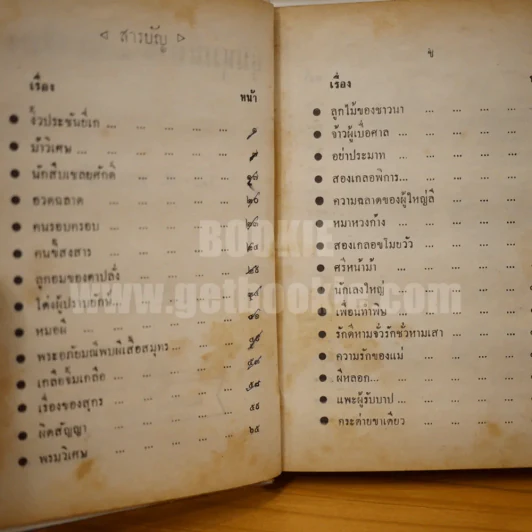 ◁ สารบัญ ▷
เรื่อง
หน้า
● งิ้วประชันยี่เก ... ... ... ... ๑
● ม้าวิเศษ ... ... ... ... ๗
● นักสืบเชลยศักดิ์ ... ... ...
● อวดฉลาด ... ... ... ... ๒๐
● คนรอบครอบ ... ... ... ...
● คนขี้สงสาร ... ... ... ... ๒๔
● ลูกอมของตาปลั่ง ... ... ... ๒๘
● โต่งผู้ปราบยักษ์... ... ...
● หมอผี ... ... ... ...
● พระอภัยมณีพบผีเสื้อสมุทร... ... ...
● เกลือจิ้มเกลือ ... ... ... ...
● เรื่องของสุกร ... ... ... ...
● ผิดสัญญา ... ... ... ... ๖๕
● พรมวิเศษ ... ... ... ...
ข
เรื่อง
● ลูกไม้ของชาวนา ... ...
● ข้าวผู้เบื่อศาล ... ... ...
● อย่าประมาท ... ... ...
● สองเกลอพิการ... ... ...
● ความฉลาดของผู้ใหญ่ลี ...
● หมาหวงก้าง ... ... ...
● สองเกลอขโมยวัว ... ...
● ศรีหน้าม้า ... ... ...
● นักเลงใหญ่ ... ... ...
● เพื่อนทำพิษ ... ... ...
● รักดีหามจั่วรักชั่วหามเสา ...
● ความรักของแม่ ... ...
● ผีหลอก... ... ... ...
● แพะผู้รับบาป ... ... ...
● กระต่ายขาเดียว ... ...
BOOKIE
www.getbookie.com